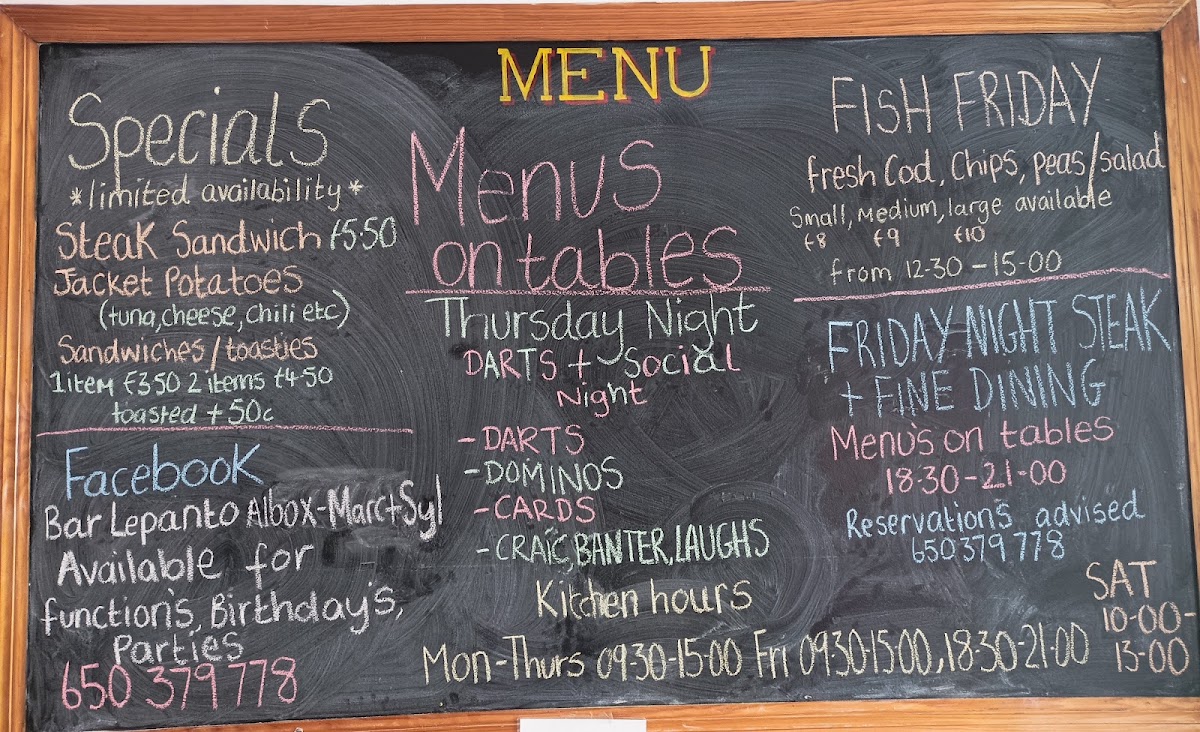 MENU
Specials
*limited availability*
Steak Sandwich £5.50
Jacket Potatoes
(tuna, cheese, chili etc)
Sandwiches/toasties
1 item £3.50 2 items £4.50
toasted + 50c
Facebook
Bar Lepanto Albox - Marc + Syl
Available for
function's, Birthday's,
Parties
650 379 778
Menus
on tables
Thursday Night
DARTS + Social
Night
- DARTS
- DOMINOS
- CARDS
- CRAIC, BANTER, LAUGHS
Kitchen hours
Mon-Thurs 09.30-15.00 Fri 09.30-15.00, 18.30-21.00
SAT
10-00-
13-00
FISH FRIDAY
fresh Cod, Chips, peas/salad
Small, Medium, large available
£8 £9 £10
from 12-30 - 15-00
FRIDAY NIGHT STEAK
+ FINE DINING
Menu's on tables
18.30-21.00
Reservations advised
650 379 778